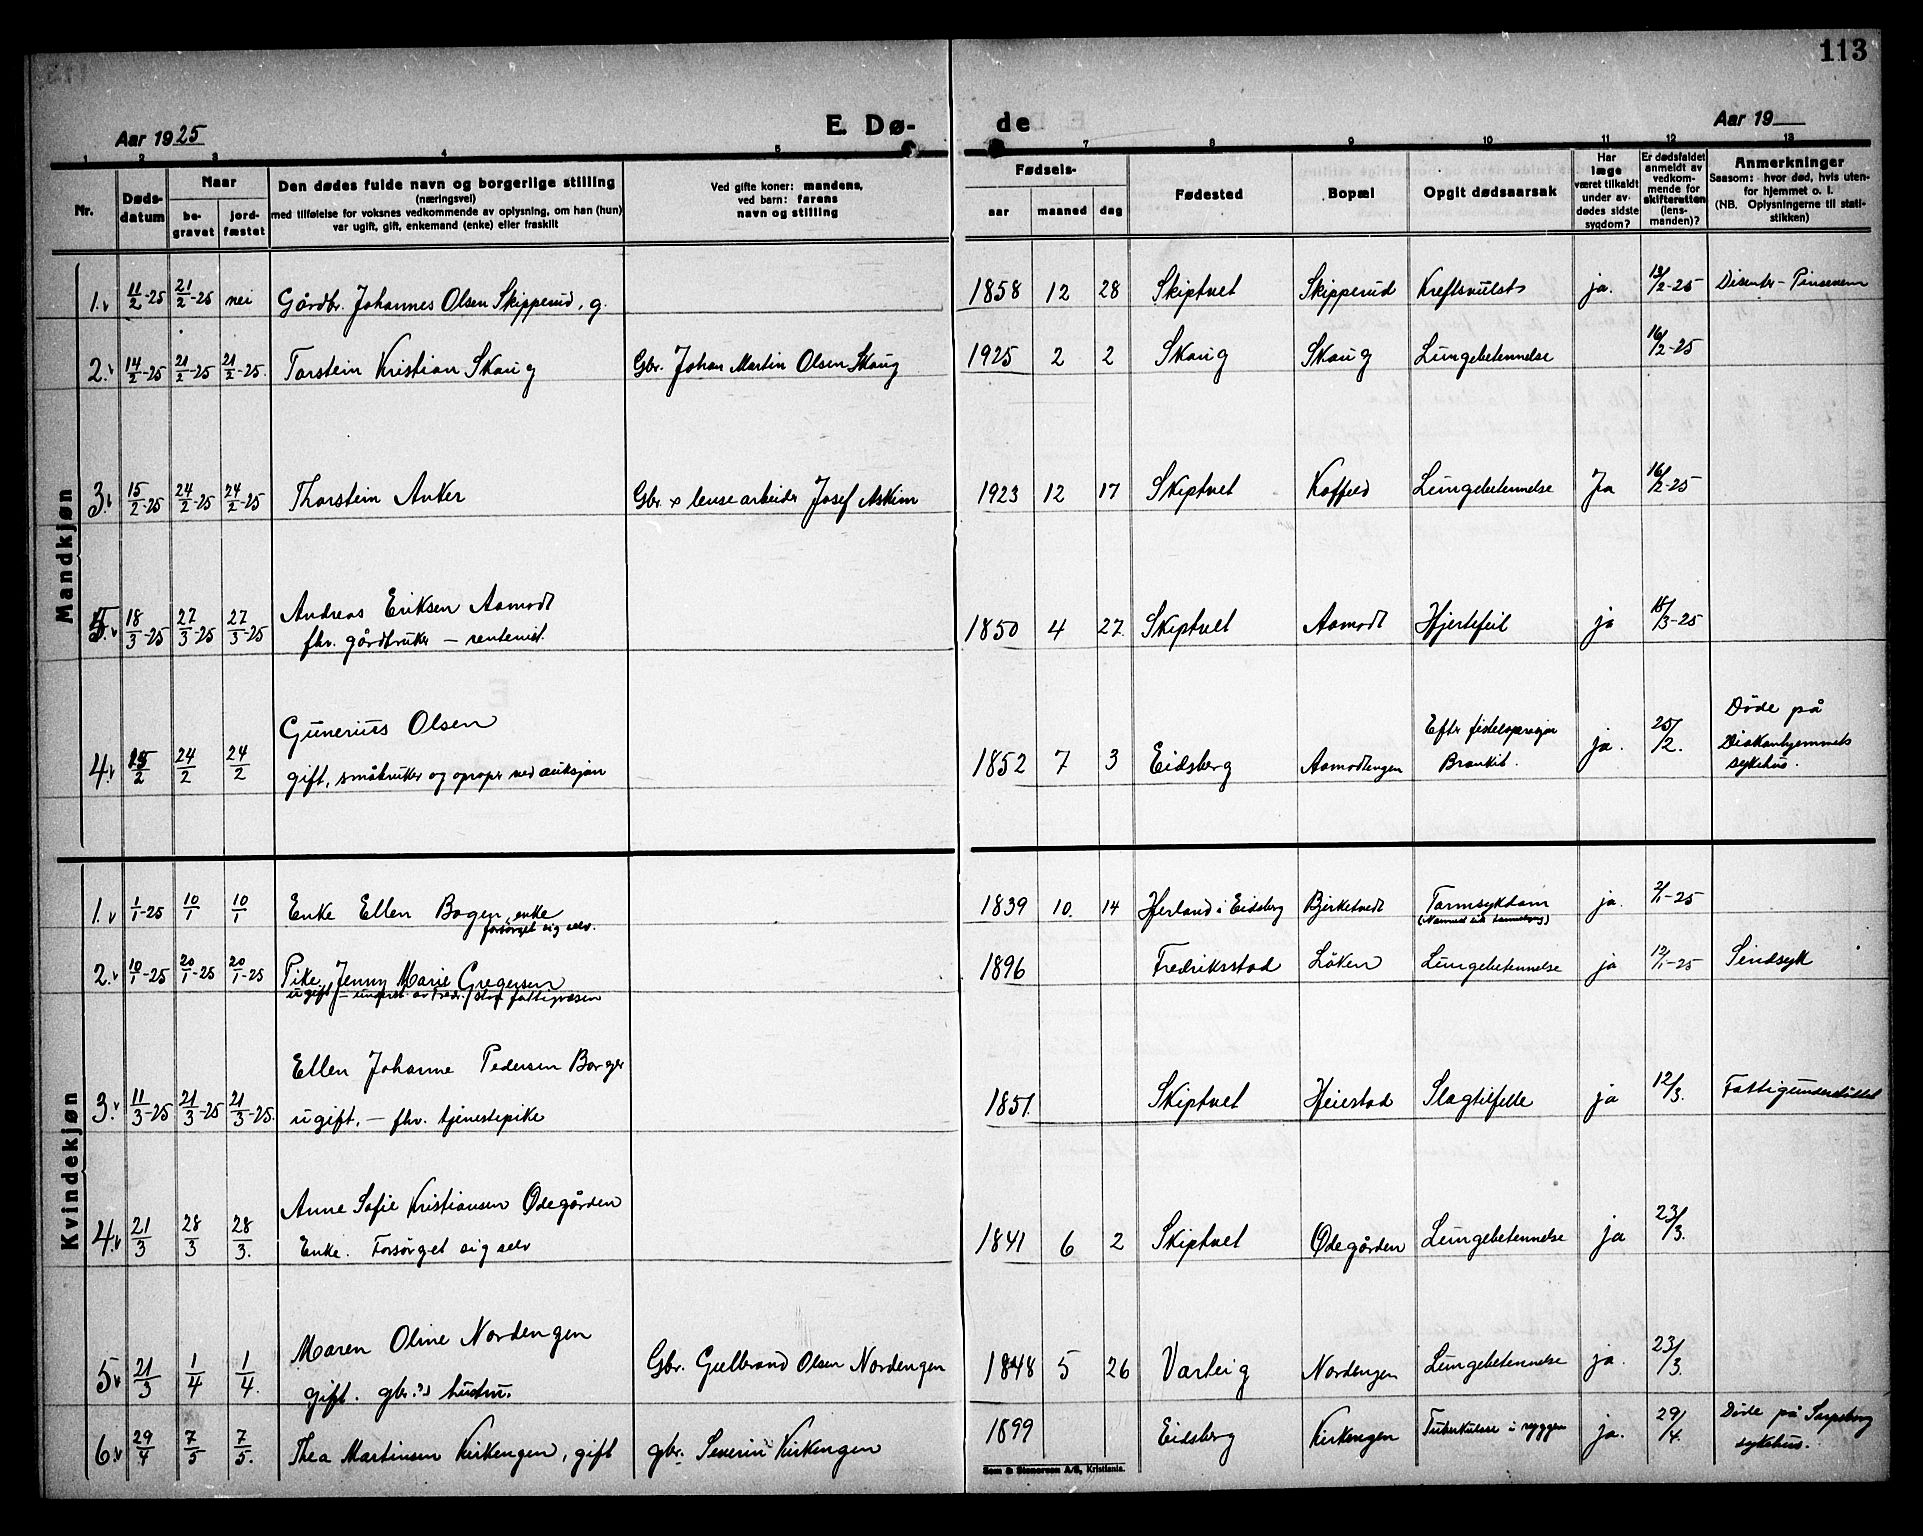 113
Aar 1925
E. Dø-
de
Aar 19
1 2 3 4 5 7 8 9 10 11 12 13
Nr.
Døds-
datum
Naar
be-
gravet
jord-
fæstet
Den dødes fulde navn og borgerlige stilling
(næringsvei)
med tilføielse for voksnes vedkommende av oplysning, om han (hun)
var ugift, gift, enkemand (enke) eller fraskilt
Ved gifte koner: mandens,
ved barn: farens
navn og stilling
Fødsels-
aar maaned dag
Fødested
Bopæl
Opgit dødsaarsak
Har
læge
været tilkaldt
under av-
dødes sidste
sygdom?
Er dødsfaldet
anmeldt av
vedkom-
mende for
skifteretten
(lens-
manden)?
Anmerkninger
Saasom: hvor død, hvis uten-
for hjemmet o. l.
(NB. Oplysningerne til stati-
stikken)
Mandkjøn
1. 11/2-25 21/2-25 nei Gårdbr. Johannes Olsen Skipperud, g. 1858 12 28 Skiptvet Skipperud Kreftsvulst ja. 13/2-25 Disenter - Pinseven
2. 14/2-25 21/2-25 21/2-25. Torstein Kristian Skaug Gbr. Johan Martin Olsen Skaug 1925 2 2 Skaug Skaug Lungebetennelse 16/2-25
3. 15/2-25 24/2-25 24/2-25 Thorstein Anker Gbr. x lensearbeider Josef Askim 1923 12 17 Skiptvet Koffeld Lungebetennelse Ja 16/2-25
5. 18/3-25 27/3-25 27/3-25 Andreas Eriksen Aamodt
fhv. gårdbruker - rentenist. 1850 4 27. Skiptvet Aamodt Hjertefeil ja 18/3-25
4. 15/2 24/2 24/2 Gunerius Olsen
gift, småbruker og oproper ved auksjon 1852 7 3 Eidsberg Aamodtengen Efter fisteloperasjon
Bronkit. ja. 25/2. Døde på
Diakonhjemmets
sykehus.
Kvindekjøn
1. 1/1-25 10/1 10/1 Enke Ellen Bogen, enke
forsørget sig selv. 1839 10. 14 Herland i Eidsberg Bjerketvedt Tarmsykdom ja. 2/1-25
2. 10/1-25 20/1-25 20/1-25 Pike Jenny Marie Gregersen
ugift - underst. av Fredr.stad fattigvæsen 1896 Fredriksstad Løken Lungebetennelse ja 12/1-25 Sindsyk
3. 11/3-25 21/3-25 21/3-25. Ellen Johanne Pedersen Borger
ugift, - fhv. tjenestepike 1851. Skiptvet Heiestad Slagtilfelle ja 12/3. Fattigunderstøttet
4. 21/3 28/3 28/3. Anne Sofie Kristiansen Ødegården
Enke. Forsørget sig selv 1841 6 2 Skiptvet Ødegården Lungebetennelse ja 23/3.
5 21/3 1/4 1/4. Maren Oline Nordengen
gift. gbr.'s hustru. Gbr. Gulbrand Olsen Nordengen 1848 5 26 Varteig Nordengen Lungebetennelse ja. 23/3.
6. 29/4 7/5 7/5. Thea Martinsen Kirkengen, gift gbr. Severin Kirkengen 1899 Eidsberg Kirkengen Tuberkulose i ryggen ja. 29/4. Døde på Sarpsborg
sykehus.
Sem & Stenersen A/S, Kristiania.